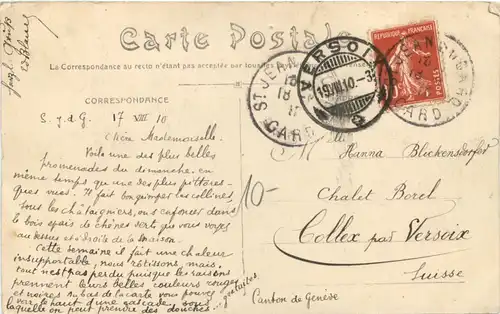 Carte Postale
La Correspondance au recto n'est pas acceptée par tous les pays
CORRESPONDANCE
S. J. d G. 17 VIII 10
Chère Mademoiselle.
Voilà une des plus belles
promenades du dimanche, en
même temps que une des plus pittores-
ques vues. Il fait bon grimper les collines
sous les châtaigniers, ou s'enfoncer dans
le bois épais de chênes verts que vous voyez
au dessus et à droite de la maison.
Cette semaine il fait une chaleur
insupportable, nous rôtissons, mais
tout n'est pas perdu puisque les raisins
prennent leurs belles couleurs rouges
et noires. Au bas de la carte vous pouvez
voir le haut d'une cascade sous
laquelle on peut prendre des douches...
gratuites
10-
REPUBLIQUE FRANÇAISE
POSTES
ST JEAN
GARD
VERSOIX
19.VIII.10.-
GARD
Mlle
Hanna Blickensdorfer
Chalet Borel
Collex par Versoix
Suisse
Canton de Genève